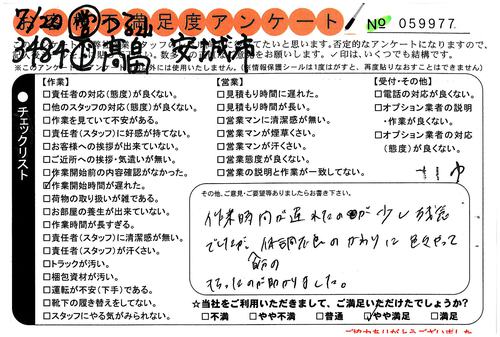 お客様不満足度アンケート
No 059977
安城市
✓印は、いくつでも結構です。
チェックリスト
【作業】
□責任者の対応(態度)が良くない。
□他のスタッフの対応(態度)が良くない。
□作業を見ていて不安がある。
□責任者(スタッフ)に好感が持てない。
□お客様への挨拶が出来ていない。
□ご近所への挨拶・気遣いが無い。
□作業開始前の内容確認がなかった。
☑作業開始時間が遅れた。
□荷物の取り扱いが雑である。
□お部屋の養生が出来ていない。
□作業時間が長すぎる。
□責任者(スタッフ)に清潔感が無い。
□責任者(スタッフ)が汗くさい。
□トラックが汚い。
□梱包資材が汚い。
□運転が不安(下手)である。
□靴下の履き替えをしてない。
□スタッフにやる気がみられない。
【営業】
□見積もり時間に遅れた。
□見積もり時間が長い。
□営業マンに清潔感が無い。
□営業マンが煙草くさい。
□営業マンが汗くさい。
□営業態度が良くない。
□営業の説明と作業が一致してない。
【受付・その他】
□電話の対応が良くない。
□オプション業者の説明
・作業が良くない。
□オプション業者の対応
(態度)が良くない。
その他、ご意見・ご要望等ありましたらお書き下さい。
作業時間が遅れたのが少し残念
でしたが、体調不良のかわりに色々やって
もらったのが助かりました。
☆当社をご利用いただきまして、ご満足いただけたでしょうか?
□不満 □やや不満 □普通 ☑やや満足 □満足
ご協力ありがとうございました